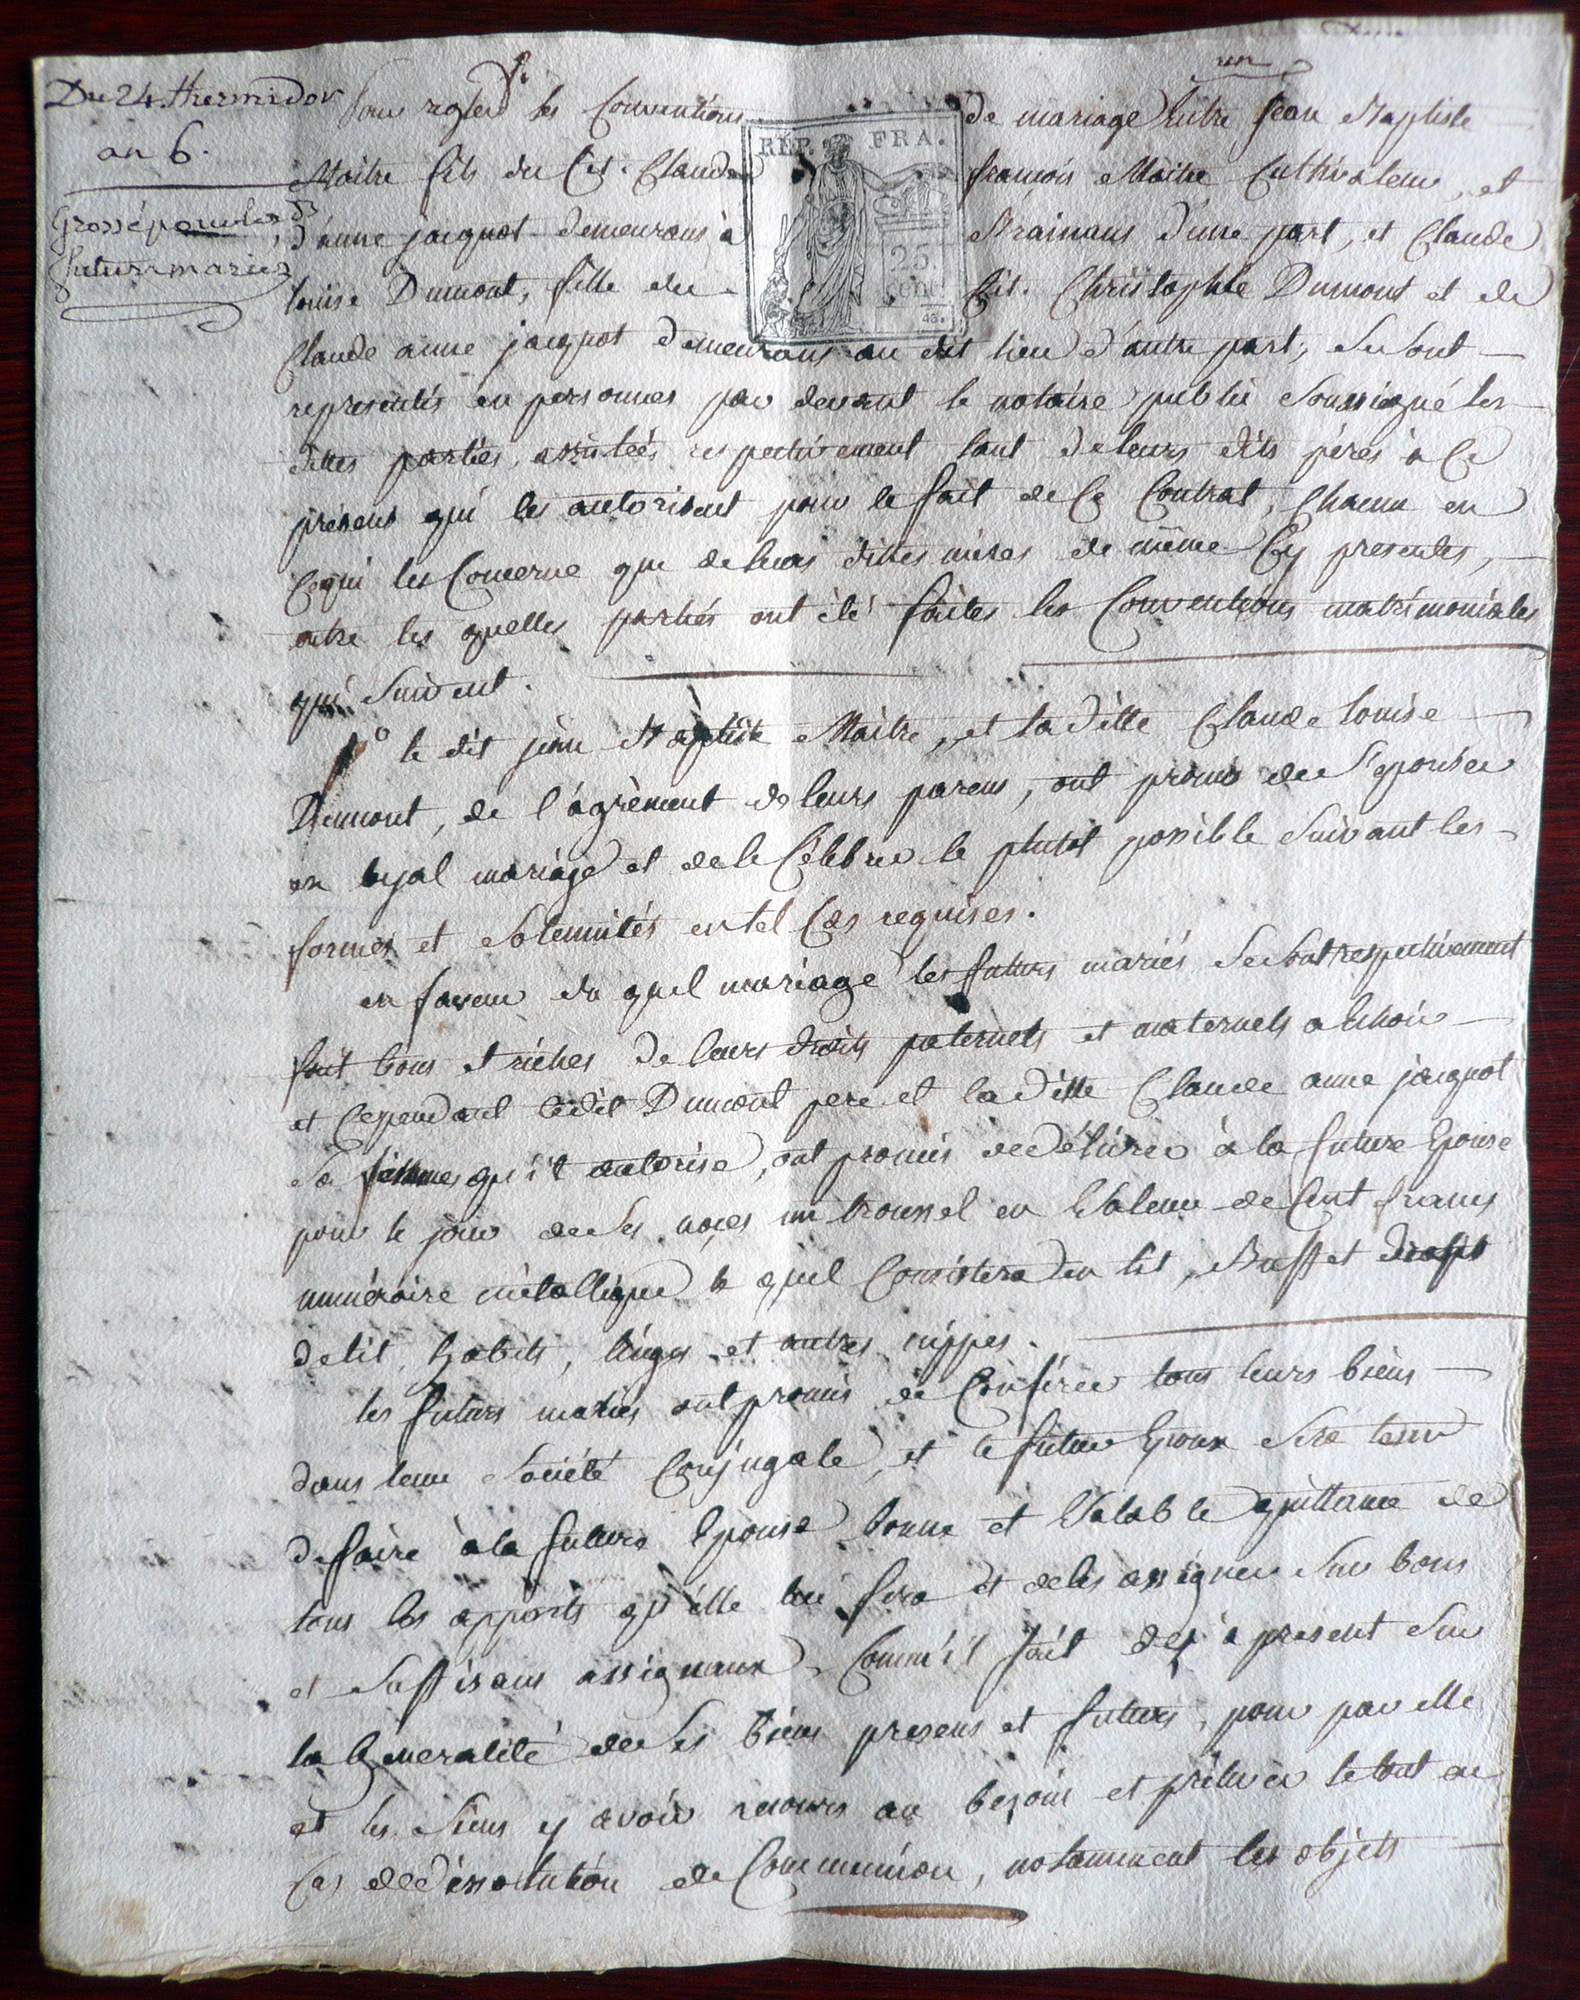 un
Du 24. thermidor
an 6.
Grossé pour les ds
futurs mariez
Pour regler les Conventions de mariage Entre jean Baptiste
Maitre fils du Cit. Claude francois Maitre Cultivateur, et
d'anne jacquot demeurans à Brainans d'une part, et Claude
louise Dumont, fille du Cit. Christophle Dumont et de
Claude anne jacquot demeurans au dit lieu d'autre part, se sont
representés en personnes par devant le notaire public soussigné les
dittes parties, assistées respectivement tant de leurs dits péres à ce
présens qui les autorisent pour le fait de ce Contrat, Chacun en
ce qui les Concerne que de leurs dittes méres de même Cy presentes,
entre les quelles parties ont été faites les Conventions matrimoniales
qui suivent.
1° le dit jean Baptiste Maitre, et la ditte Claude louise
Dumont, de l'agrèment de leurs parens, ont promis de s'epouser
en loyal mariage et de le Célébrer le plutot possible suivant les
formes et solemnités en tel Cas requises.
en faveur du quel mariage les futurs mariés se sont respectivement
fait bons et riches de leurs droits paternels et maternels a Echoir
et Cependant le dit Dumont pere et la ditte Claude anne jacquot
sa femme qu'il autorise, ont promis de délivrer à la future Epouse
pour le jour de ses noces un troussel en Valeur de Cent francs
numéraire métallique le quel Consistera en lit, Buffet draps
de lit, habits, linges et autres nippes.
les futurs mariés ont promis de Conférer tous leurs biens
dans leur Société Conjugale, et le futur Epoux sera tenu
de faire à la future Epouse bonne et Valable quittance de
tous les apports qu'elle lui fera et de les assigner sur bons
et suffisans assignaux, Comm'il fait dès à present sur
la Generalité de ses biens presens et futurs, pour par elle
et les siens y avoir recours au besoin et prélever le tout en
Cas de dissolution de Communion, notamment les objets
RÉP. FRA.
25.
Cent